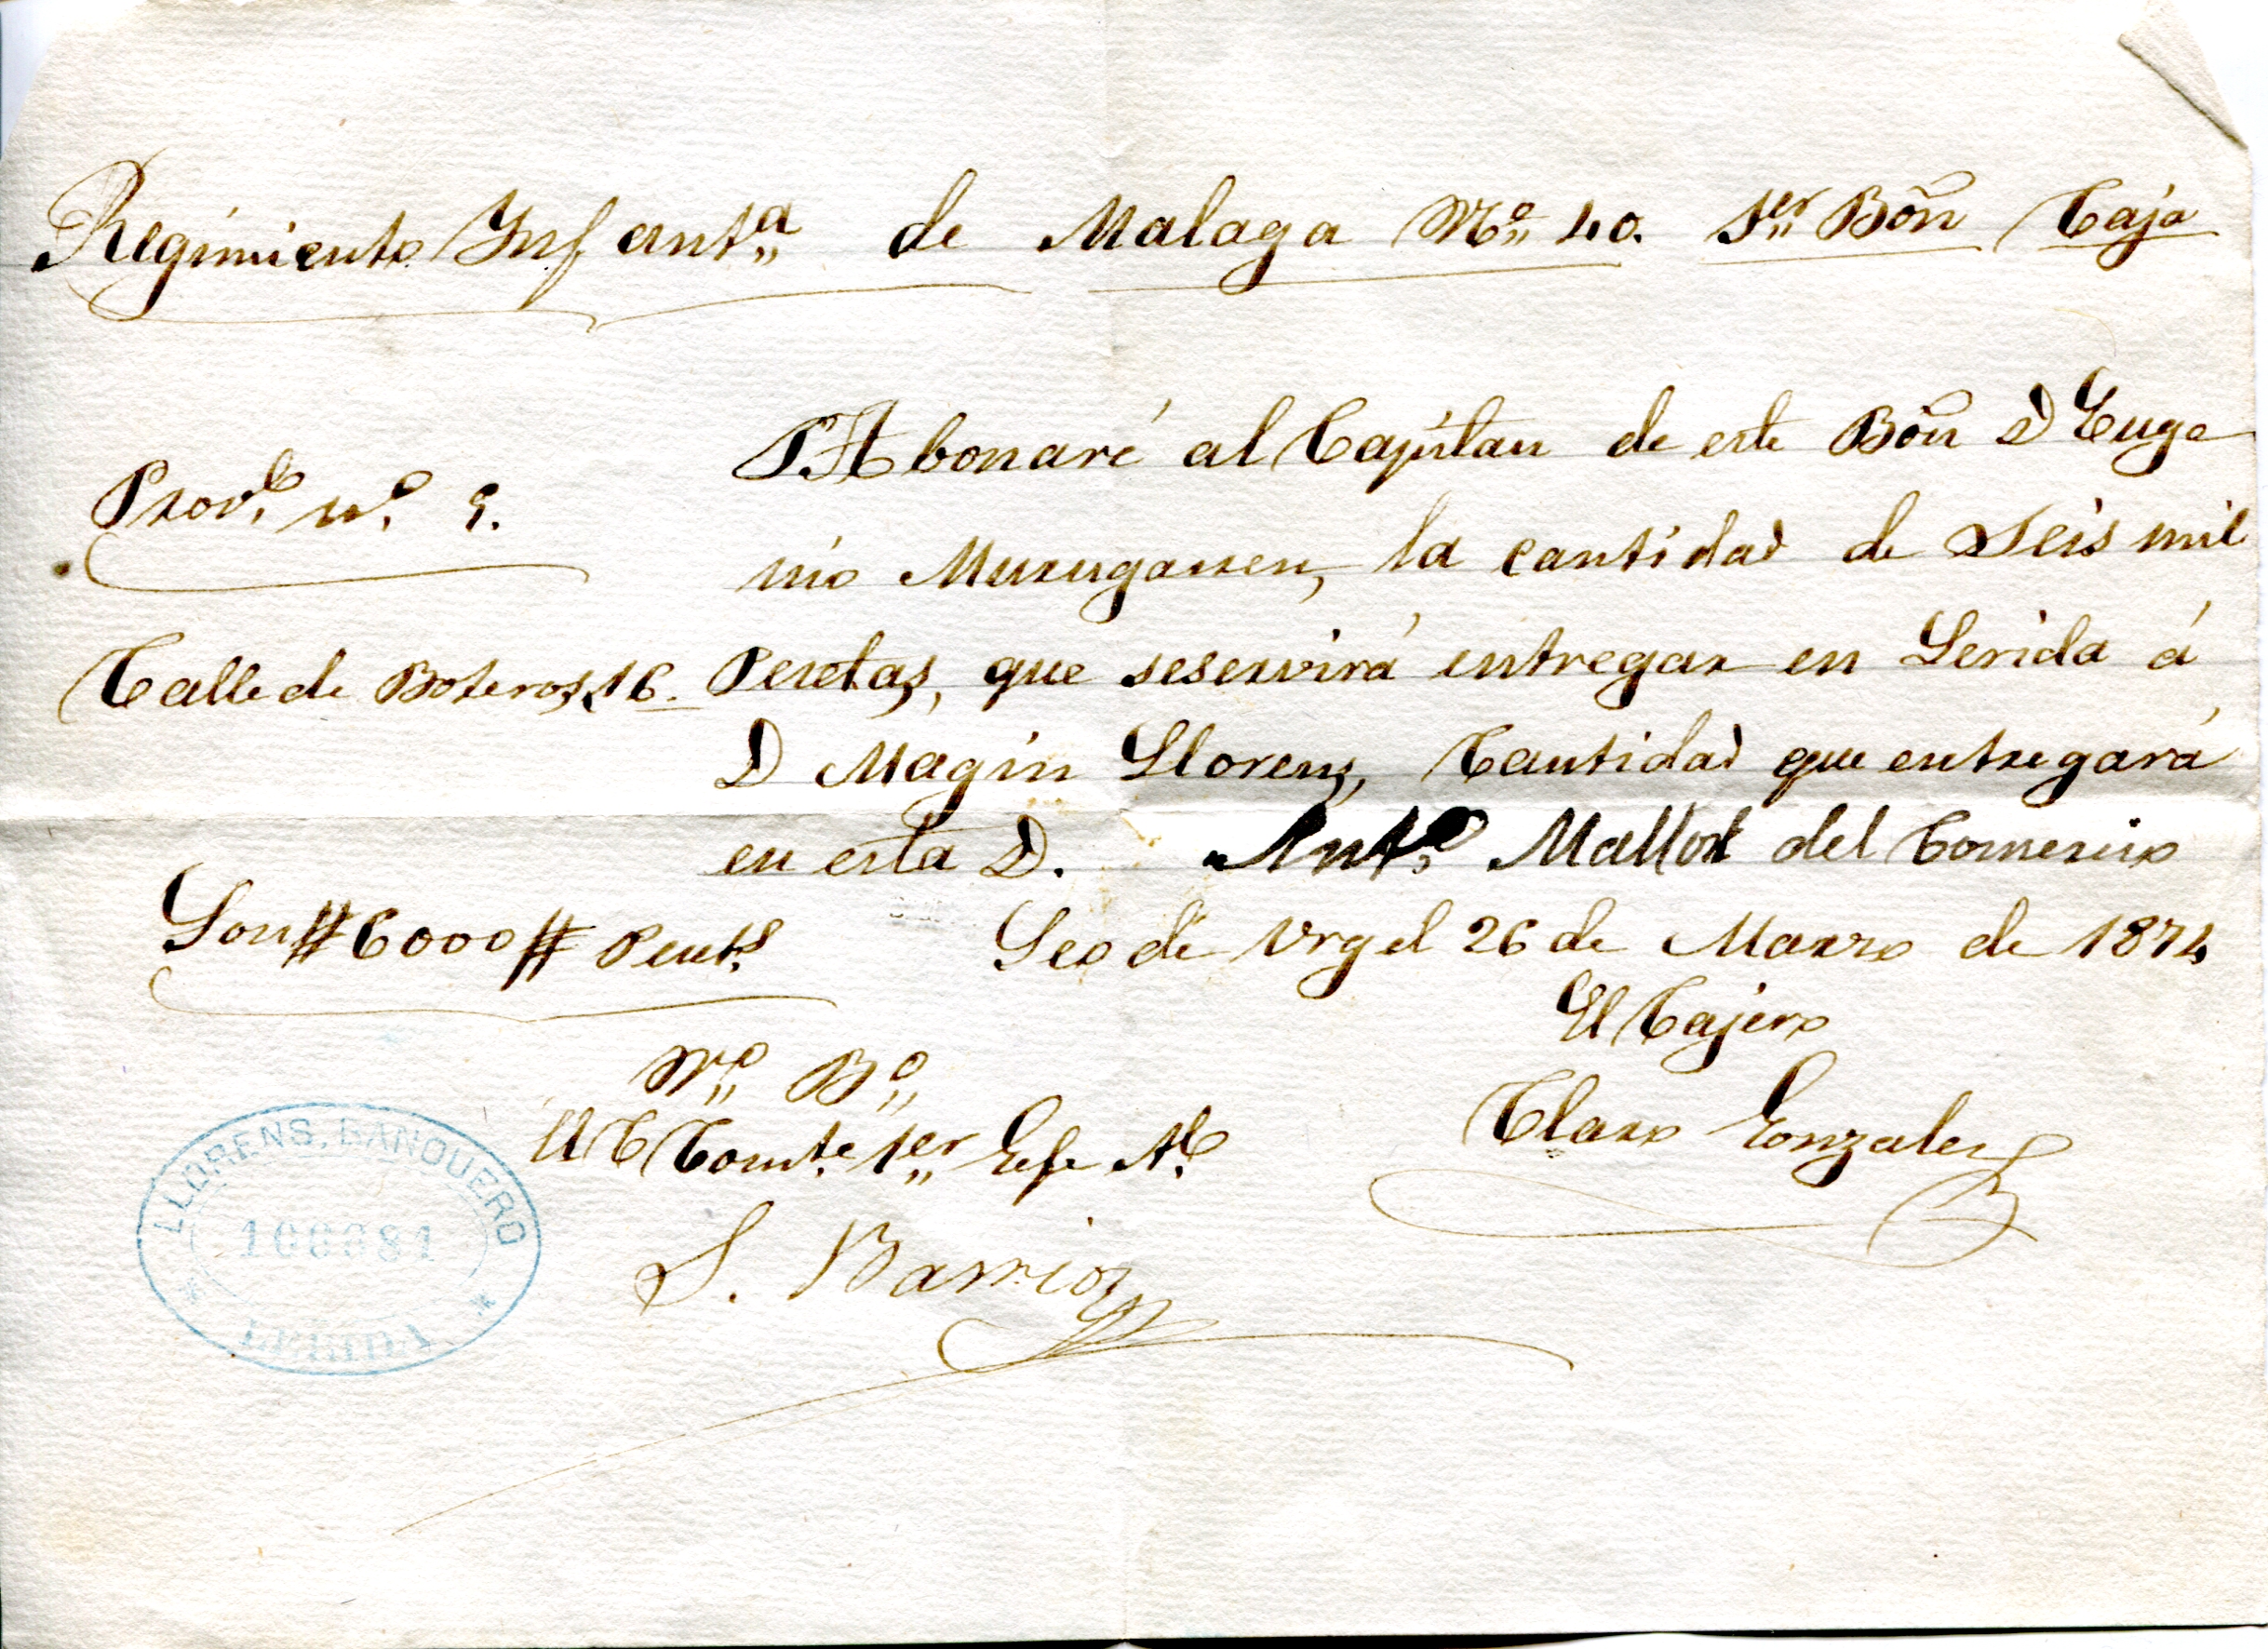 Regimiento Infantª de Malaga Nº 40. 1er Bon Caja
Abonaré al Capitan de este Bon D Euge
Prov.l nº 9.
nio Muruzarren, la cantidad de Seis mil
Calle de Boteros, 16. Pesetas, que se servirá entregar en Lerida á
D Magin Llorens, Cantidad que entregará
en esta D. Antº Mallol del Comercio
Son # 6000 # Peset.s Seo de Urgel 26 de Marzo de 1874
El Cajero
Vº Bº
El C Comte 1er Gefe Al
Claro Gonzalez
S. Barrios
LLORENS, BANQUERO
LERIDA